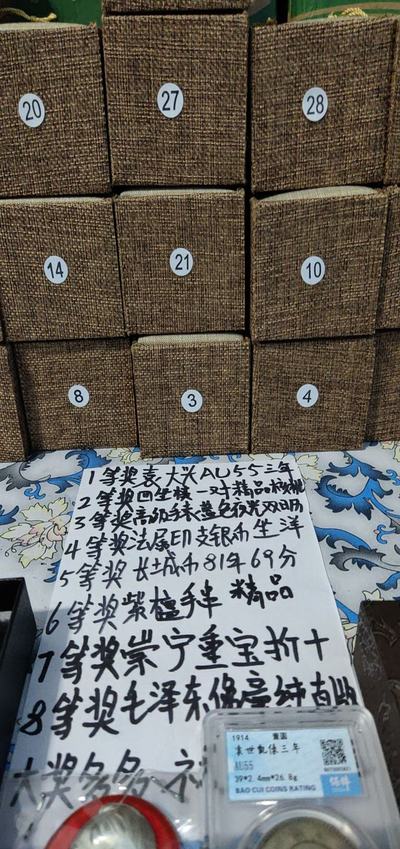 20
27
28
14
21
10
8
3
4
1等奖袁大头AU55三年
2等奖四座楼一对精品核桃
3等奖高级手表蓝色夜光双日历
4等奖法属印支银币坐洋
5等奖长城币81年69分
6等奖紫檀手串精品
7等奖崇宁重宝折十
8等奖毛泽东像章纯
大奖多多
1914 壹圆
袁世凯像三年
AU55
39*2.4mm*26.8g
BAO CUI COINS RATING